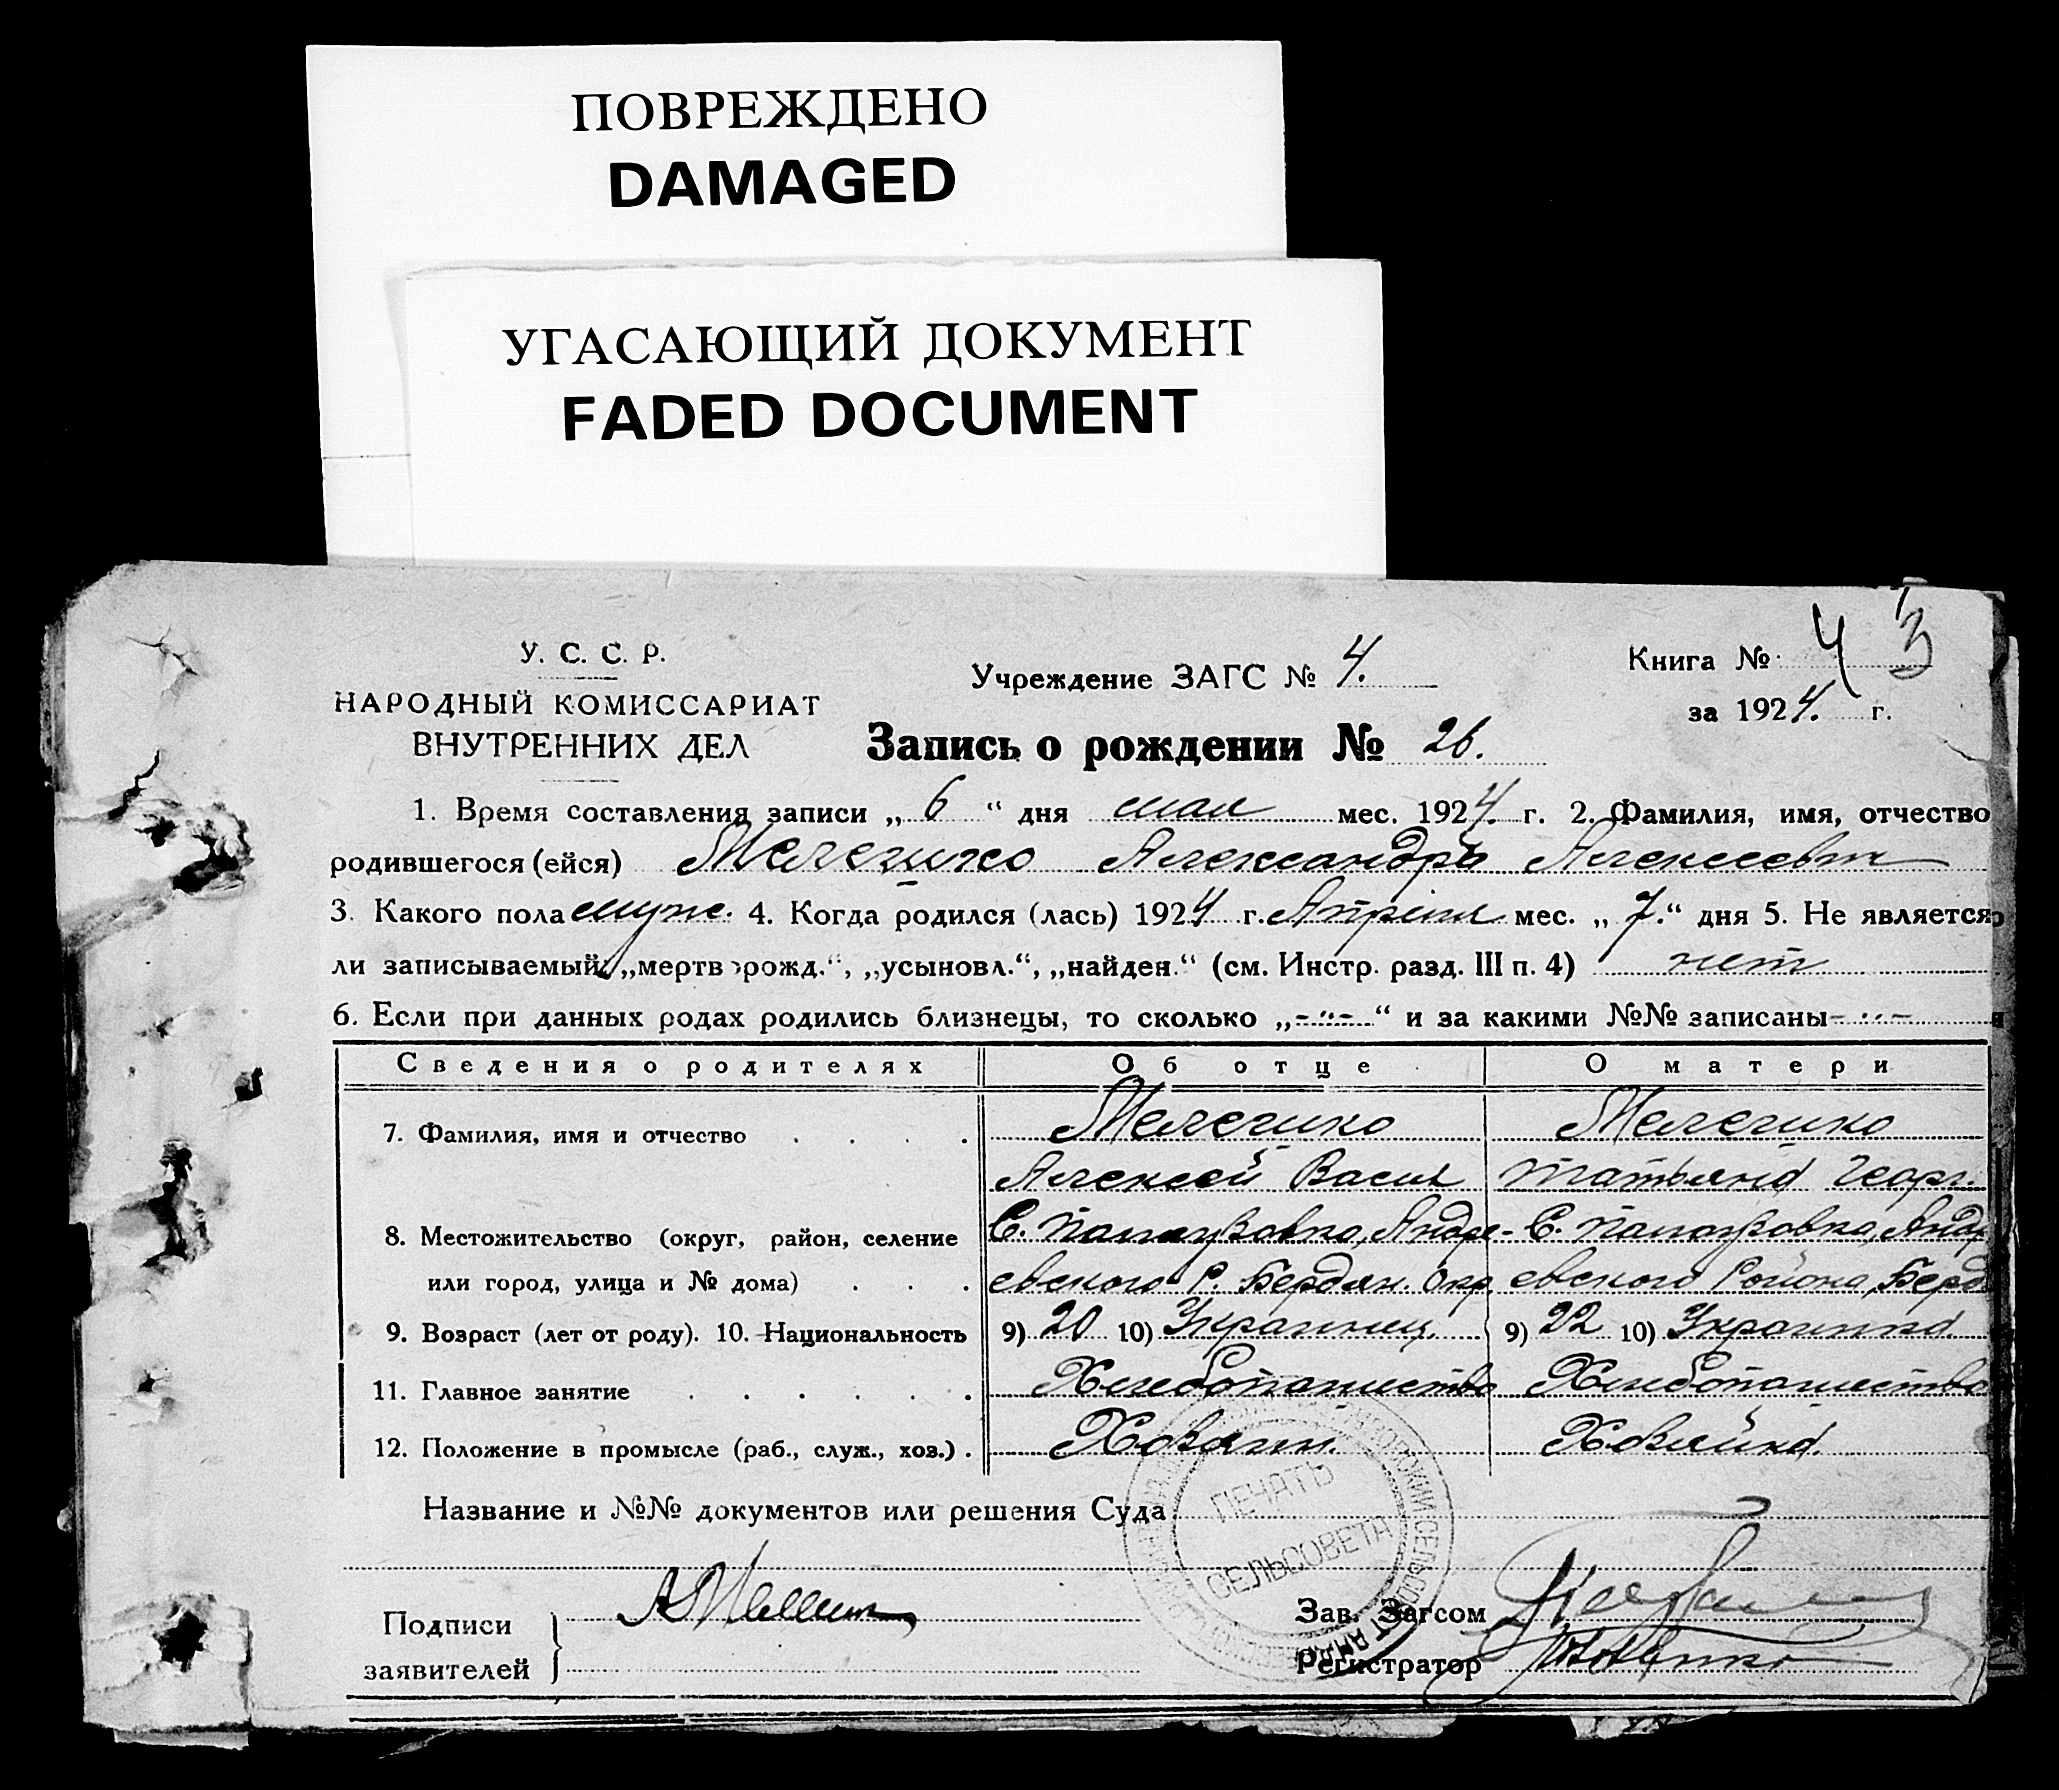 ПОВРЕЖДЕНО
DAMAGED
УГАСАЮЩИЙ ДОКУМЕНТ
FADED DOCUMENT
У. С. С. Р.
НАРОДНЫЙ КОМИССАРИАТ
ВНУТРЕННИХ ДЕЛ
Учреждение ЗАГС № 4.
Книга № 4 3
за 1924. г.
Запись о рождении № 26.
1. Время составления записи „ 6 “ дня мая мес. 1924. г. 2. Фамилия, имя, отчество
родившегося (ейся) Александръ Алексеевич
3. Какого пола муж. 4. Когда родился (лась) 1924 г. Апреля мес. „ 7.“ дня 5. Не является
ли записываемый „мертворожд.“, „усыновл.“, „найден.“ (см. Инстр. разд. III п. 4) нет
6. Если при данных родах родились близнецы, то сколько „-"-“ и за какими №№ записаны -"-
Сведения о родителях Об отце О матери
7. Фамилия, имя и отчество
Алексей Васил Татьяна Георг.
8. Местожительство (округ, район, селение С. Андре- С. Андр
или город, улица и № дома) евского Р. Бердян. Окр. евского Района, Берд
9. Возраст (лет от роду). 10. Национальность 9) 20 10) Украинец 9) 22 10) Украинка
11. Главное занятие Хлебопашество Хлебопашество
12. Положение в промысле (раб., служ., хоз.) . Хозяин. Хозяйка.
Название и №№ документов или решения Суда
ПЕЧАТЬ
СЕЛЬСОВЕТА
Подписи
заявителей
Зав. Загсом
Регистратор